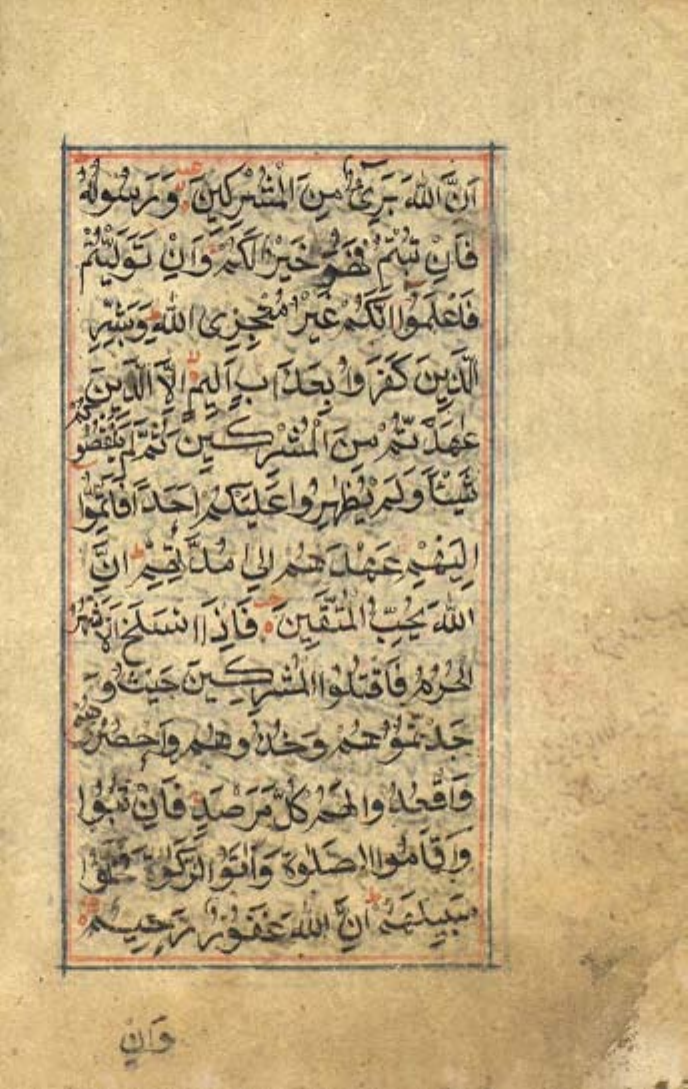 اَنَّ اللّٰهَ بَرِیْۤءٌ مِنَ الْمُشْرِكِیْنَ وَرَسُولُهُ
فَاِنْ تُبْتُمْ فَهُوَ خَیْرٌ لَكُمْ وَاِنْ تَوَلَّیْتُمْ
فَاعْلَمُوْا اَنَّكُمْ غَیْرُ مُعْجِزِی اللّٰهِ وَبَشِّرِ
الَّذِیْنَ كَفَرُوا بِعَذَابٍ اَلِیْمٍ اِلَّا الَّذِیْنَ
عٰهَدْتُّمْ مِنَ الْمُشْرِكِیْنَ ثُمَّ لَمْ یَنْقُصُوكُمْ
شَیْئًا وَلَمْ یُظٰهِرُوا عَلَیْكُمْ اَحَدًا فَاَتِمُّوْا
اِلَیْهِمْ عَهْدَهُمْ اِلٰی مُدَّتِهِمْ اِنَّ
اللّٰهَ یُحِبُّ الْمُتَّقِیْنَ فَاِذَا انْسَلَخَ الْاَشْهُرُ
الْحُرُمُ فَاقْتُلُوا الْمُشْرِكِیْنَ حَیْثُ وَ
جَدْتُمُوْهُمْ وَخُذُوهُمْ وَاحْصُرُوهُمْ
وَاقْعُدُوا لَهُمْ كُلَّ مَرْصَدٍ فَاِنْ تَابُوا
وَاَقَامُوا الصَّلٰوةَ وَاٰتَوُا الزَّكٰوةَ فَخَلُّوْا
سَبِیْلَهُمْ اِنَّ اللّٰهَ غَفُوْرٌ رَحِیْمٌ
وَاِنْ